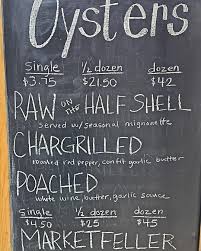 Oysters
Single ½ dozen dozen
$3.75 $21.50 $42
RAW ON THE HALF SHELL
served w/ seasonal mignonette
CHARGRILLED
roasted red pepper, confit garlic butter
POACHED
white wine, butter, garlic sauce
Single ½ dozen dozen
$4.50 $25 $45
MARKETFELLER